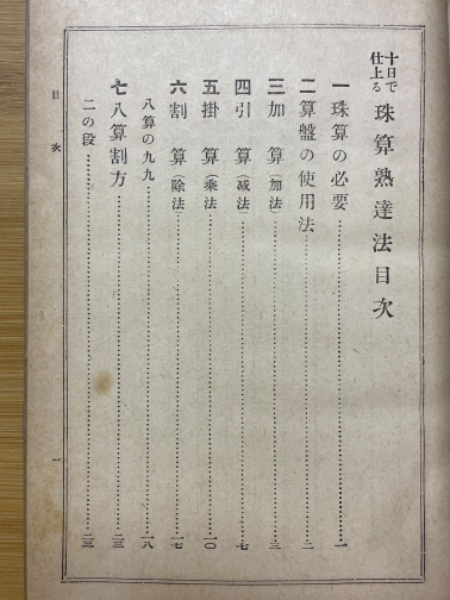 十日で仕上る 珠算熟達法目次
一 珠算の必要……一
二 算盤の使用法……二
三 加算(加法)……三
四 引算(减法)……七
五 掛算(乘法)……一〇
六 割算(除法)……一七
八算の九九……一八
七 八算割方……二三
二の段……二三
目次
一